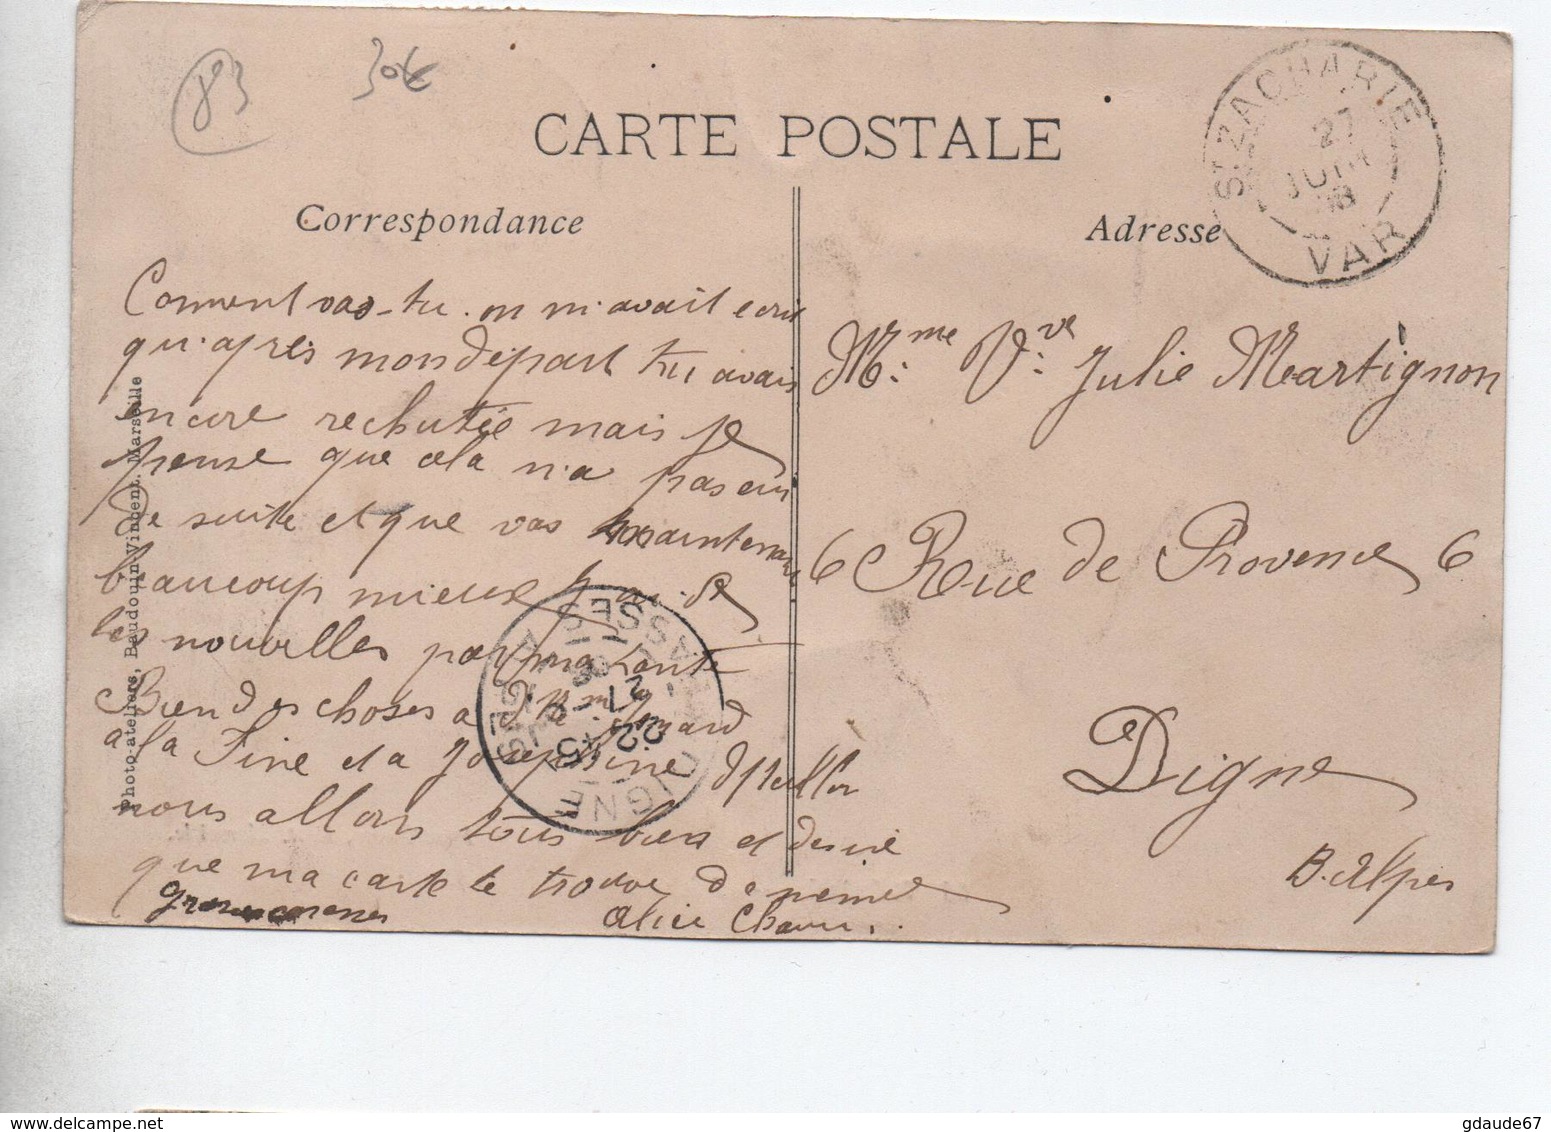 83
30€
CARTE POSTALE
Correspondance
Adresse
ST ZACHARIE
27
JUIN
08
VAR
Comment vas-tu. on m'avait ecrit
qu'après mon départ tu avais
encore rechutée mais je
pense que cela n'a pas eu
de suite et que vas maintenant
beaucoup mieux
les nouvelles par ma tante
Bien des choses a Mme
a la Fine et a Josephine
nous allons tous bien et desire
que ma carte te trouve de meme
grosses caresses
Alice
Mme Vve Julie Martignon
6 Rue de Provence 6
Digne
B. Alpes
DIGNE
BASSES ALPES
Photo-ateliers, Baudouin-Vincent. Marseille
http://www.delcampe.net
gdaude67